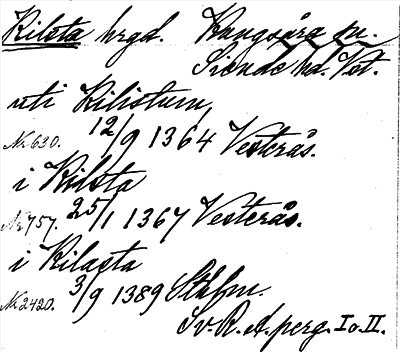 Kilsta hrgd. Kungsåra sn.
Siende hd. Vst.
uti Kilistum,
Nr 630. 12/9 1364 Vesterås.
i Kilsta
Nr 757. 25/1 1367 Vesterås.
i Kilasta
Nr 2420. 3/9 1389 Sthlm.
Sv. R. A. perg. I o. II.